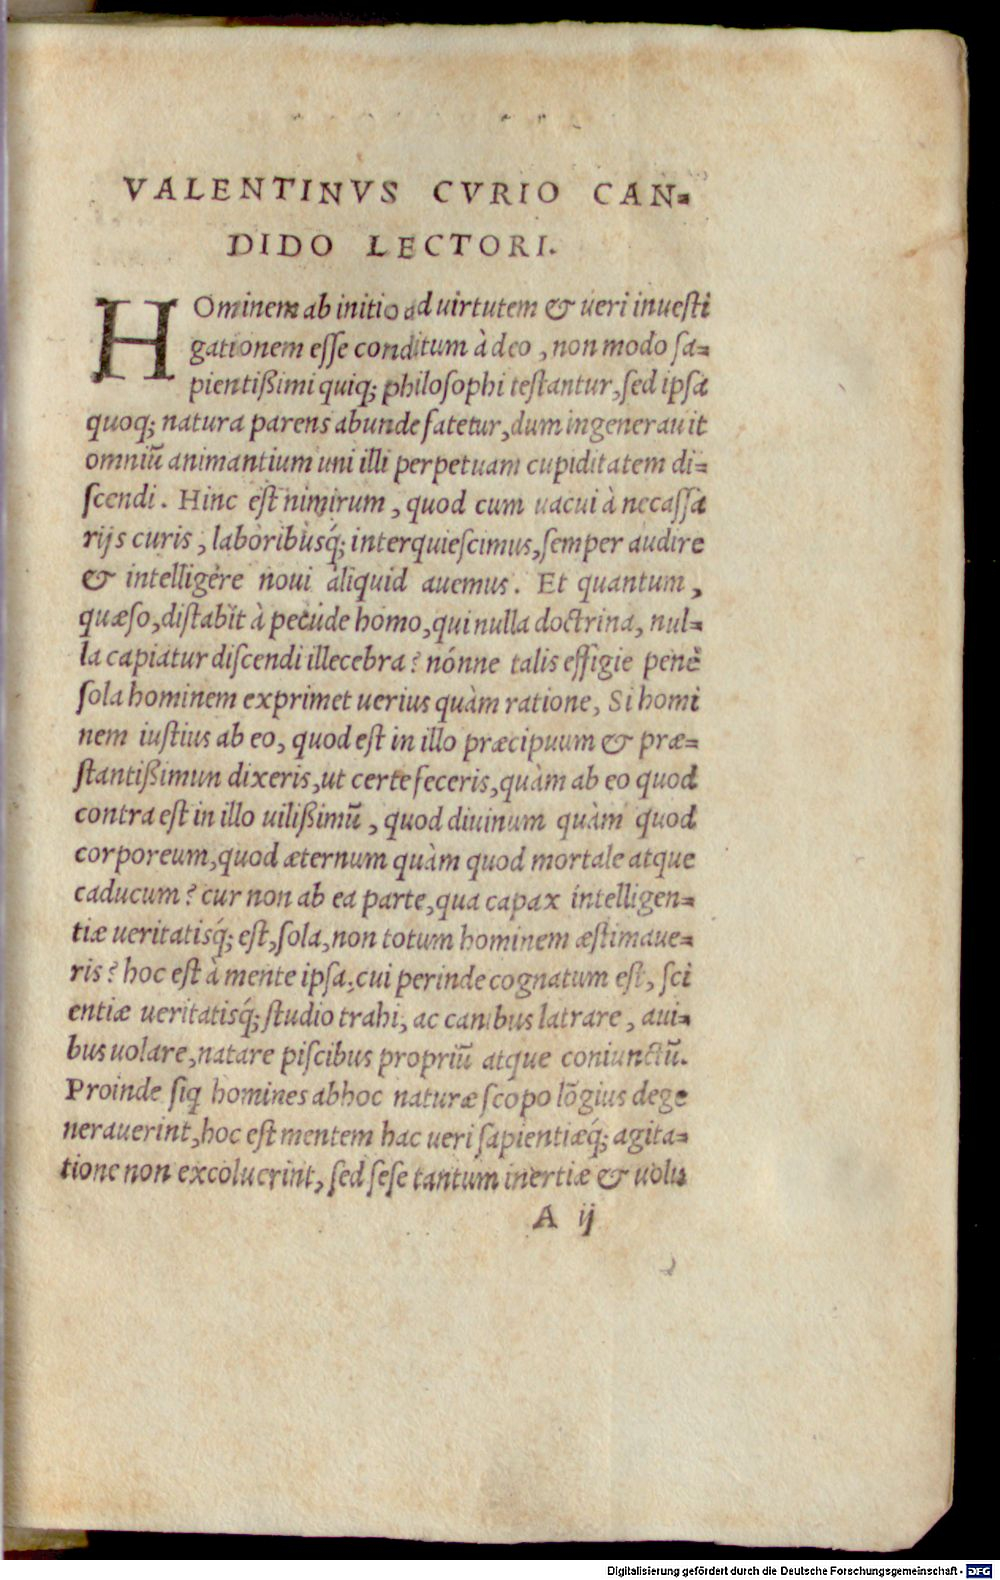 VALENTINVS CVRIO CAN=
DIDO LECTORI.
HOminem ab initio ad uirtutem & ueri inuesti
gationem esse conditum à deo, non modo sa=
pientißimi quiq; philosophi testantur, sed ipsa
quoq; natura parens abunde fatetur, dum ingenerauit
omniū animantium uni illi perpetuam cupiditatem di=
scendi. Hinc est nimirum, quod cum uacui à necassa
rijs curis, laboribùsq́; interquiescimus, semper audire
& intelligere noui aliquid auemus. Et quantum,
quæso, distabit à pecude homo, qui nulla doctrina, nul=
la capiatur discendi illecebra? nónne talis effigie penè
sola hominem exprimet uerius quàm ratione, Si homi
nem iustius ab eo, quod est in illo præcipuum & præ=
stantißimun dixeris, ut certe feceris, quàm ab eo quod
contra est in illo uilißimū, quod diuinum quàm quod
corporeum, quod æternum quàm quod mortale atque
caducum? cur non ab ea parte, qua capax intelligen=
tiæ ueritatisq́; est, sola, non totum hominem æstimaue=
ris? hoc est à mente ipsa, cui perinde cognatum est, sci
entiæ ueritatisq́; studio trahi, ac canibus latrare, aui=
bus uolare, natare piscibus propriū atque coniunctū.
Proinde siq homines ab hoc naturæ scopo lōgius dege
nerauerint, hoc est mentem hac ueri sapientiæq́; agita=
tione non excoluerint, sed sese tantum inertiæ & uolu
A ij
Digitalisierung gefördert durch die Deutsche Forschungsgemeinschaft - DFG